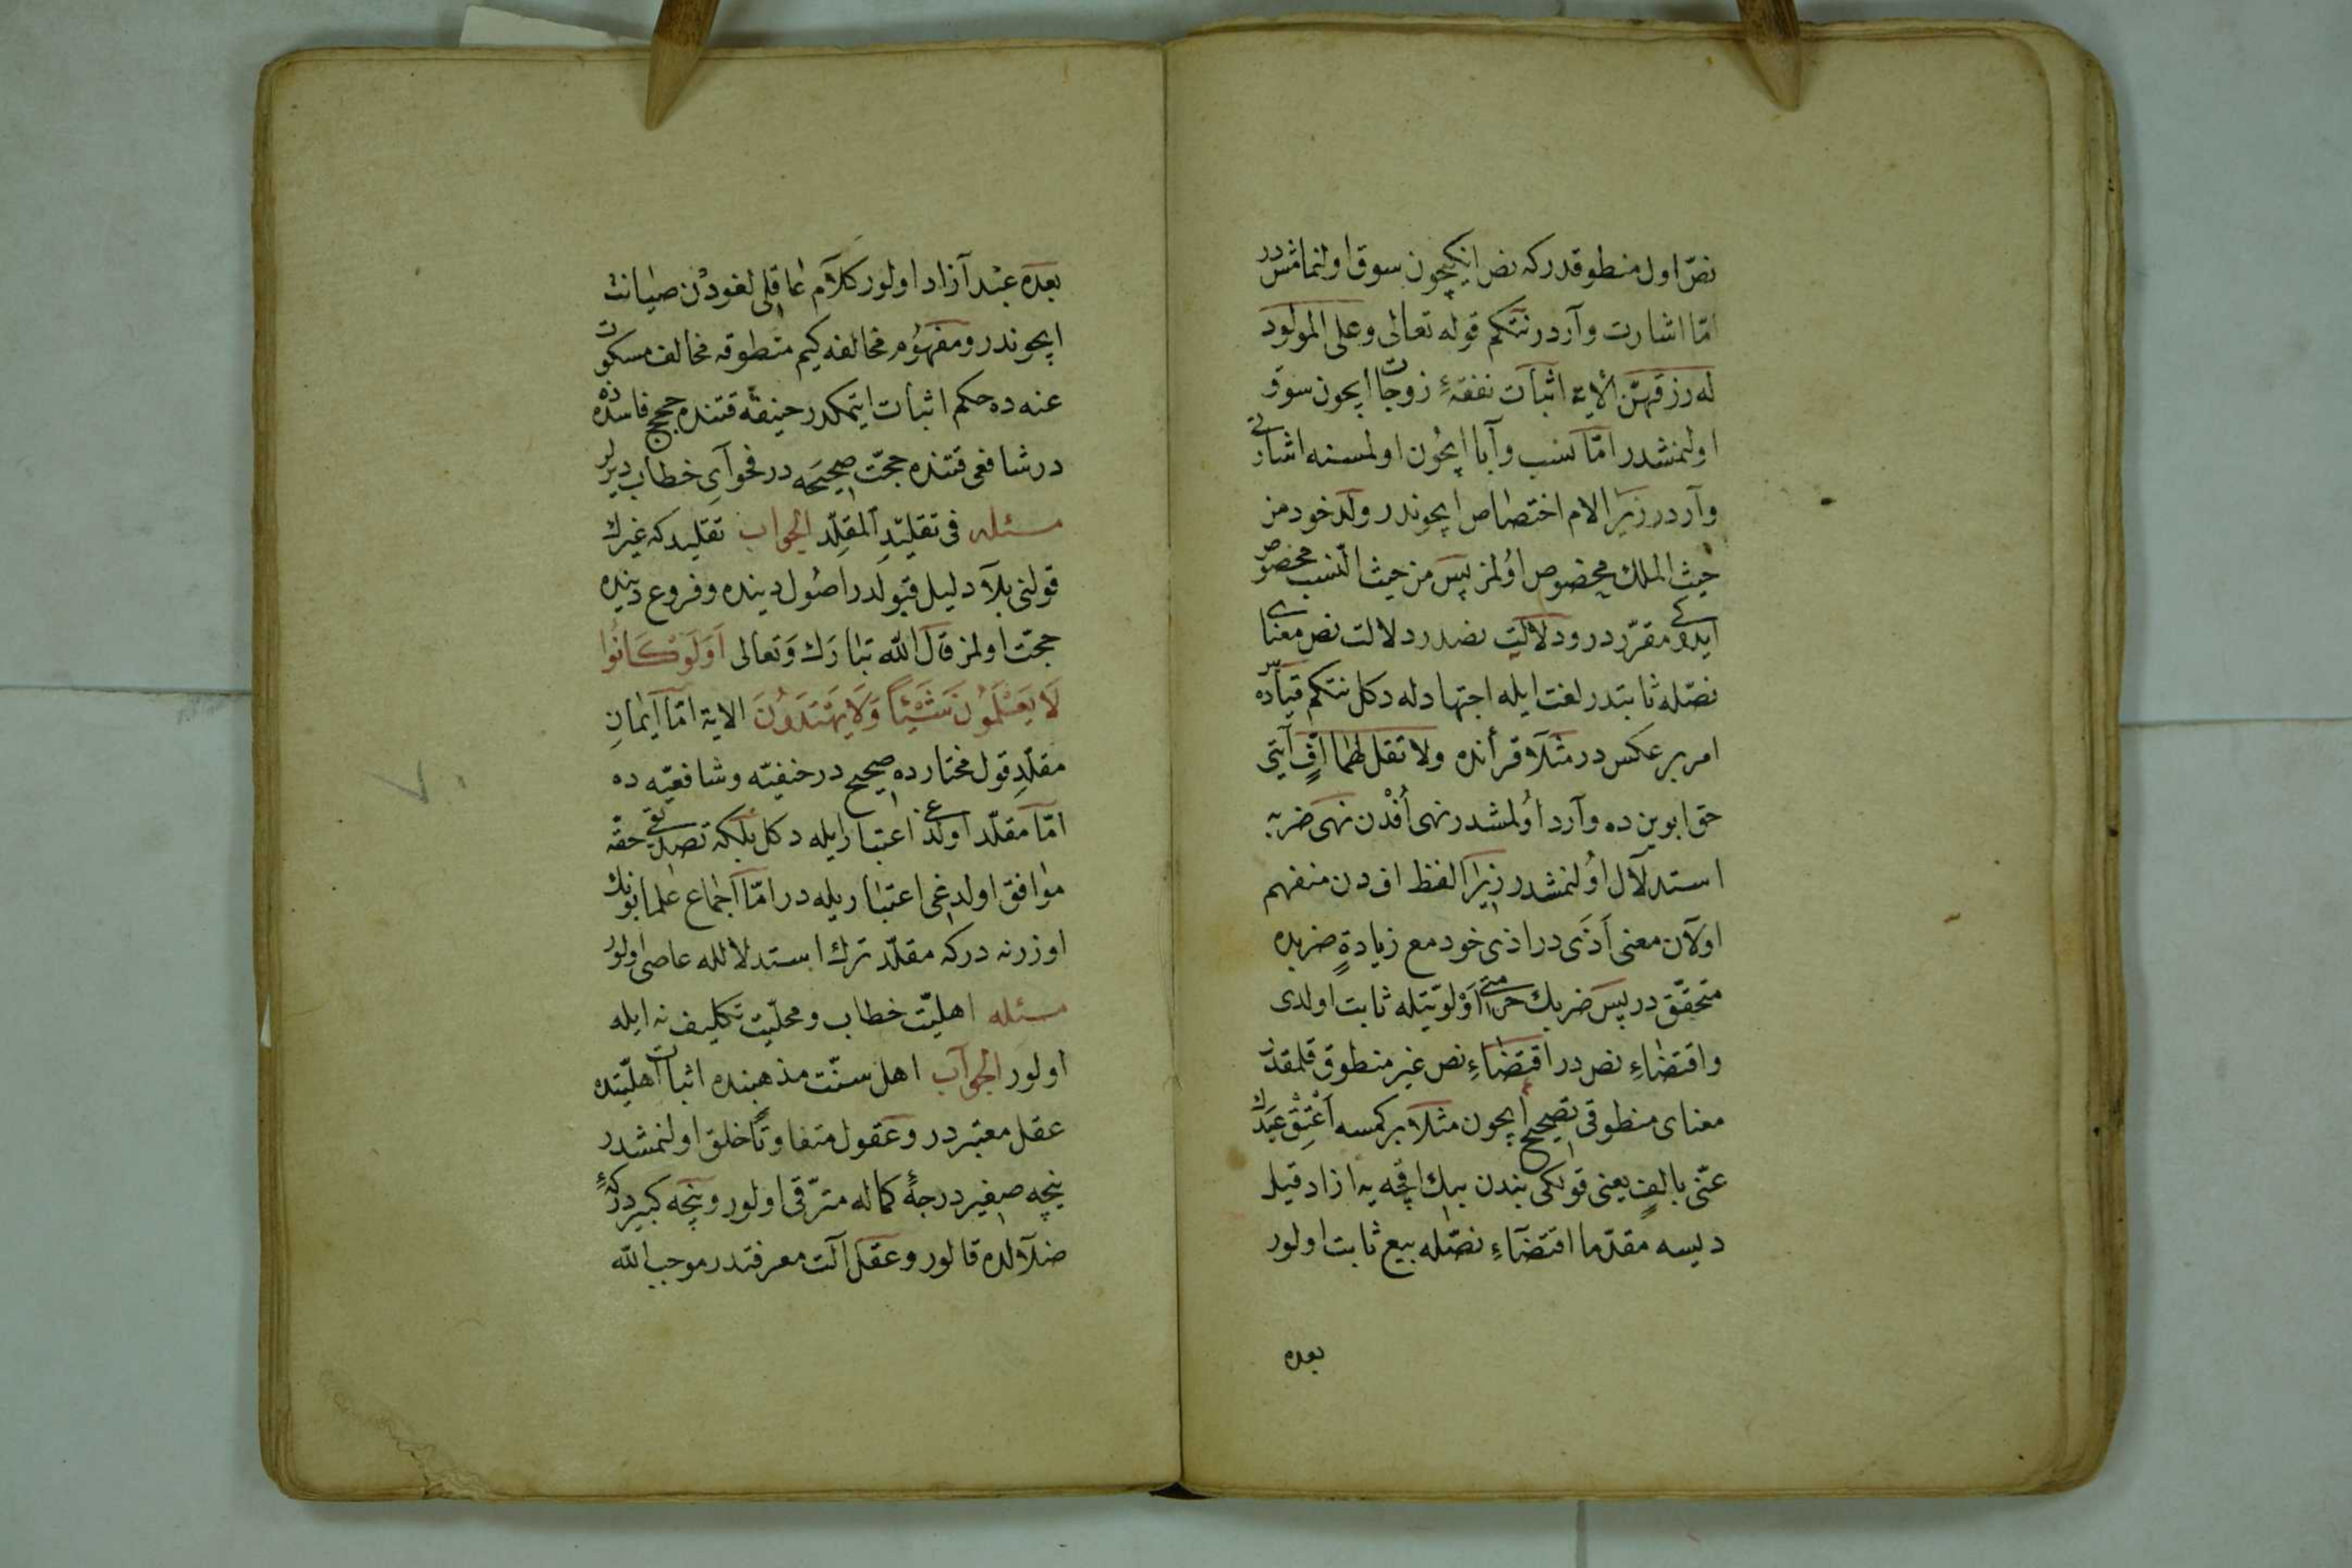 نصّ اول منطوقدركه نص انكیچون سوق اولنمامشدر
امّا اشارت وآردر نتكم قوله تعالى وعلى المولود
له رزقهنّ الأیة اثبات نفقهٔ زوجات ایچون سوق
اولنمشدر امّا نسب وآبا ایچُون اولمسنه اشارتی
وآردر زیرا لام اختصاص ایچوندر ولد خود من
حیث الملك مخصوص اوُلمز پس من حیث النّسب مخصوص
ایدوكی مقرّردر ودلالت نصدر دلالت نص معنای
نصّله ثابتدر لغت ایله اجتهادله دكل نتكم قیاسده
امر بر عكس در مثلا قرأنده ولا تقل لهما افٍّ آیتی
حق ابوین ده وآرد اوُلمشدر نهی أفدْن نهی ضربه
استدلآل اوُلنمشدر زیرا لفظ اف دن منفهم
اولآن معنی أذَى در اذى خود مع زیادةٍ ضربده
متحقّق در پس ضربك حرمتی اَوْلویّتله ثابت اولدی
واقتضاءِ نص در اقتضاءِ نص غیر منطوق قلمقدر
معنای منطوقی تصحیح ایچون مثلا بركمسه اَعْتِقْ عَبْدَكَ
عنّی بالفٍ یعنی قولكی بندن بیك اقچه یه ازاد قیل
دیسه مقدّما اقتضآءِ نصّله بیع ثابت اولور
بعده
بعده عبْد آزاد اولور كلآم عاقلی لغودْن صیانت
ایچوندر ومفهوُم مخالفه كیم منطوقه مخالف مسكوت
عنه ده حكم اثبات ایتمكدر حنیفه قتنده حجج فاسده ده
در شافعی قتنده حجّت صحیحَه در فحوآیِ خطاب دیرلر
مسئله فی تقلیدِ المقلِّد الجواب تقلید كه غیرك
قولنی بلآ دلیل قبولَدر اصُول دینده وفروع دینده
حجّت اولمز قال اللّه تبارَك وَتعالى اَوَلَوْ كَانُوا
لَا یَعْلَمُونَ شَیْئًا وَلَا یَهْتَدُونَ الایة امّا ایمانِ
مقلّدِ قول مختارده صحیح در حنفیّه وشافعیّه ده
امّا مقلّد اولدغی اعتبار ایله دكل بلكه تصدیقی حقّه
موافق اولدغی اعتبار یله در امّا اجماع علما بونك
اوزرنه دركه مقلّد ترك استدلالله عاصی اولور
مسئله اهلیّت خطاب ومحلّیت تكلیف نه ایله
اولور الجوآب اهل سنّت مذهبنده اثبات اهلیّتده
عقل معتبردر وعقول متفاوتًا خلق اولنمشدر
نیچه صغیر درجهٔ كماله مترقّی اولور ونیچه كبیر دركهٔ
ضلآلده قالور وعقل آلت معرفتدر موجب اللّه